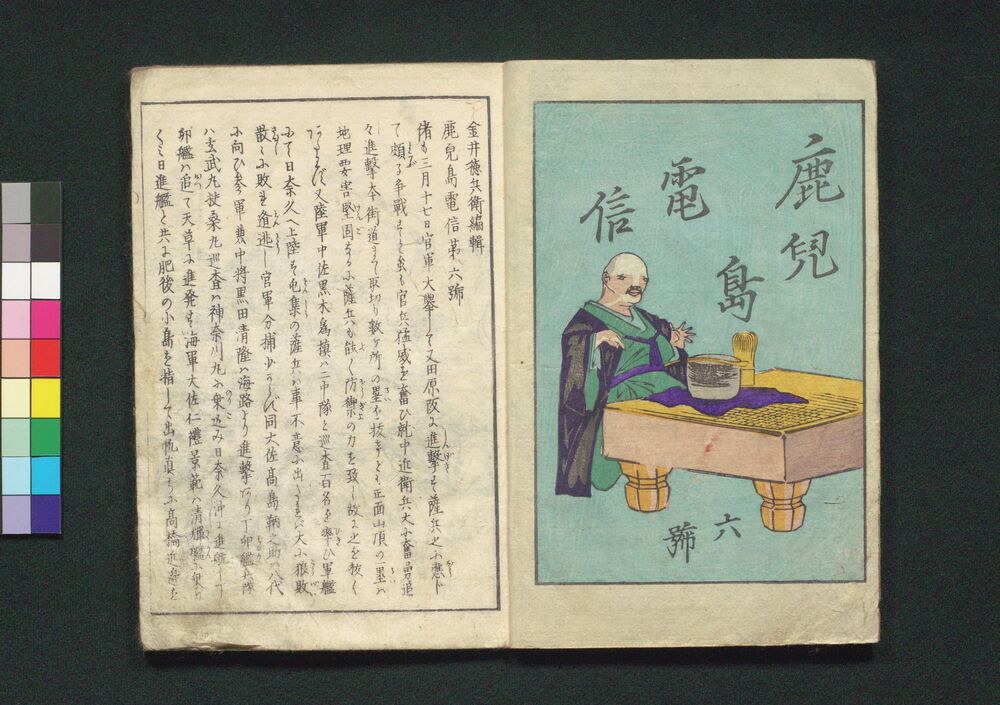 鹿兒島
電信
六號
金井德兵衛編輯
鹿兒島電信第六號
偖も三月十七日官軍大擧して又田原阪に進撃す薩兵之に應じ
て頗る爭戰すと雖も官兵猛威を奮ひ就中近衛兵大に奮勇追
々進撃本街道まで取切り數ケ所の壘を抜きしも正面山頂の一壘ハ
地理要害堅固なるに薩兵も能く防禦の力を致し故に之を抜く
又陸軍中佐黒木為楨ハ二中隊と巡査百名を率ひ軍艦
にて日奈久へ上陸す屯集の薩兵ハ事不意に出しかバ大に狼敗
散々に敗れ遁逃し官軍分捕少からず同大佐高島鞆之助ハ八代
に向ひ参軍兼中将黒田清隆ハ海路より進撃なり丁卯艦
ハ玄武丸扶桑丸巡査ハ神奈川丸に乗込み日奈久沖に進航し丁
卯艦ハ追て天草に進発す海軍大佐仁禮景範ハ清輝艦に乗り
日進艦と共に肥後の小島を指して出帆直ちに高橋近辺を